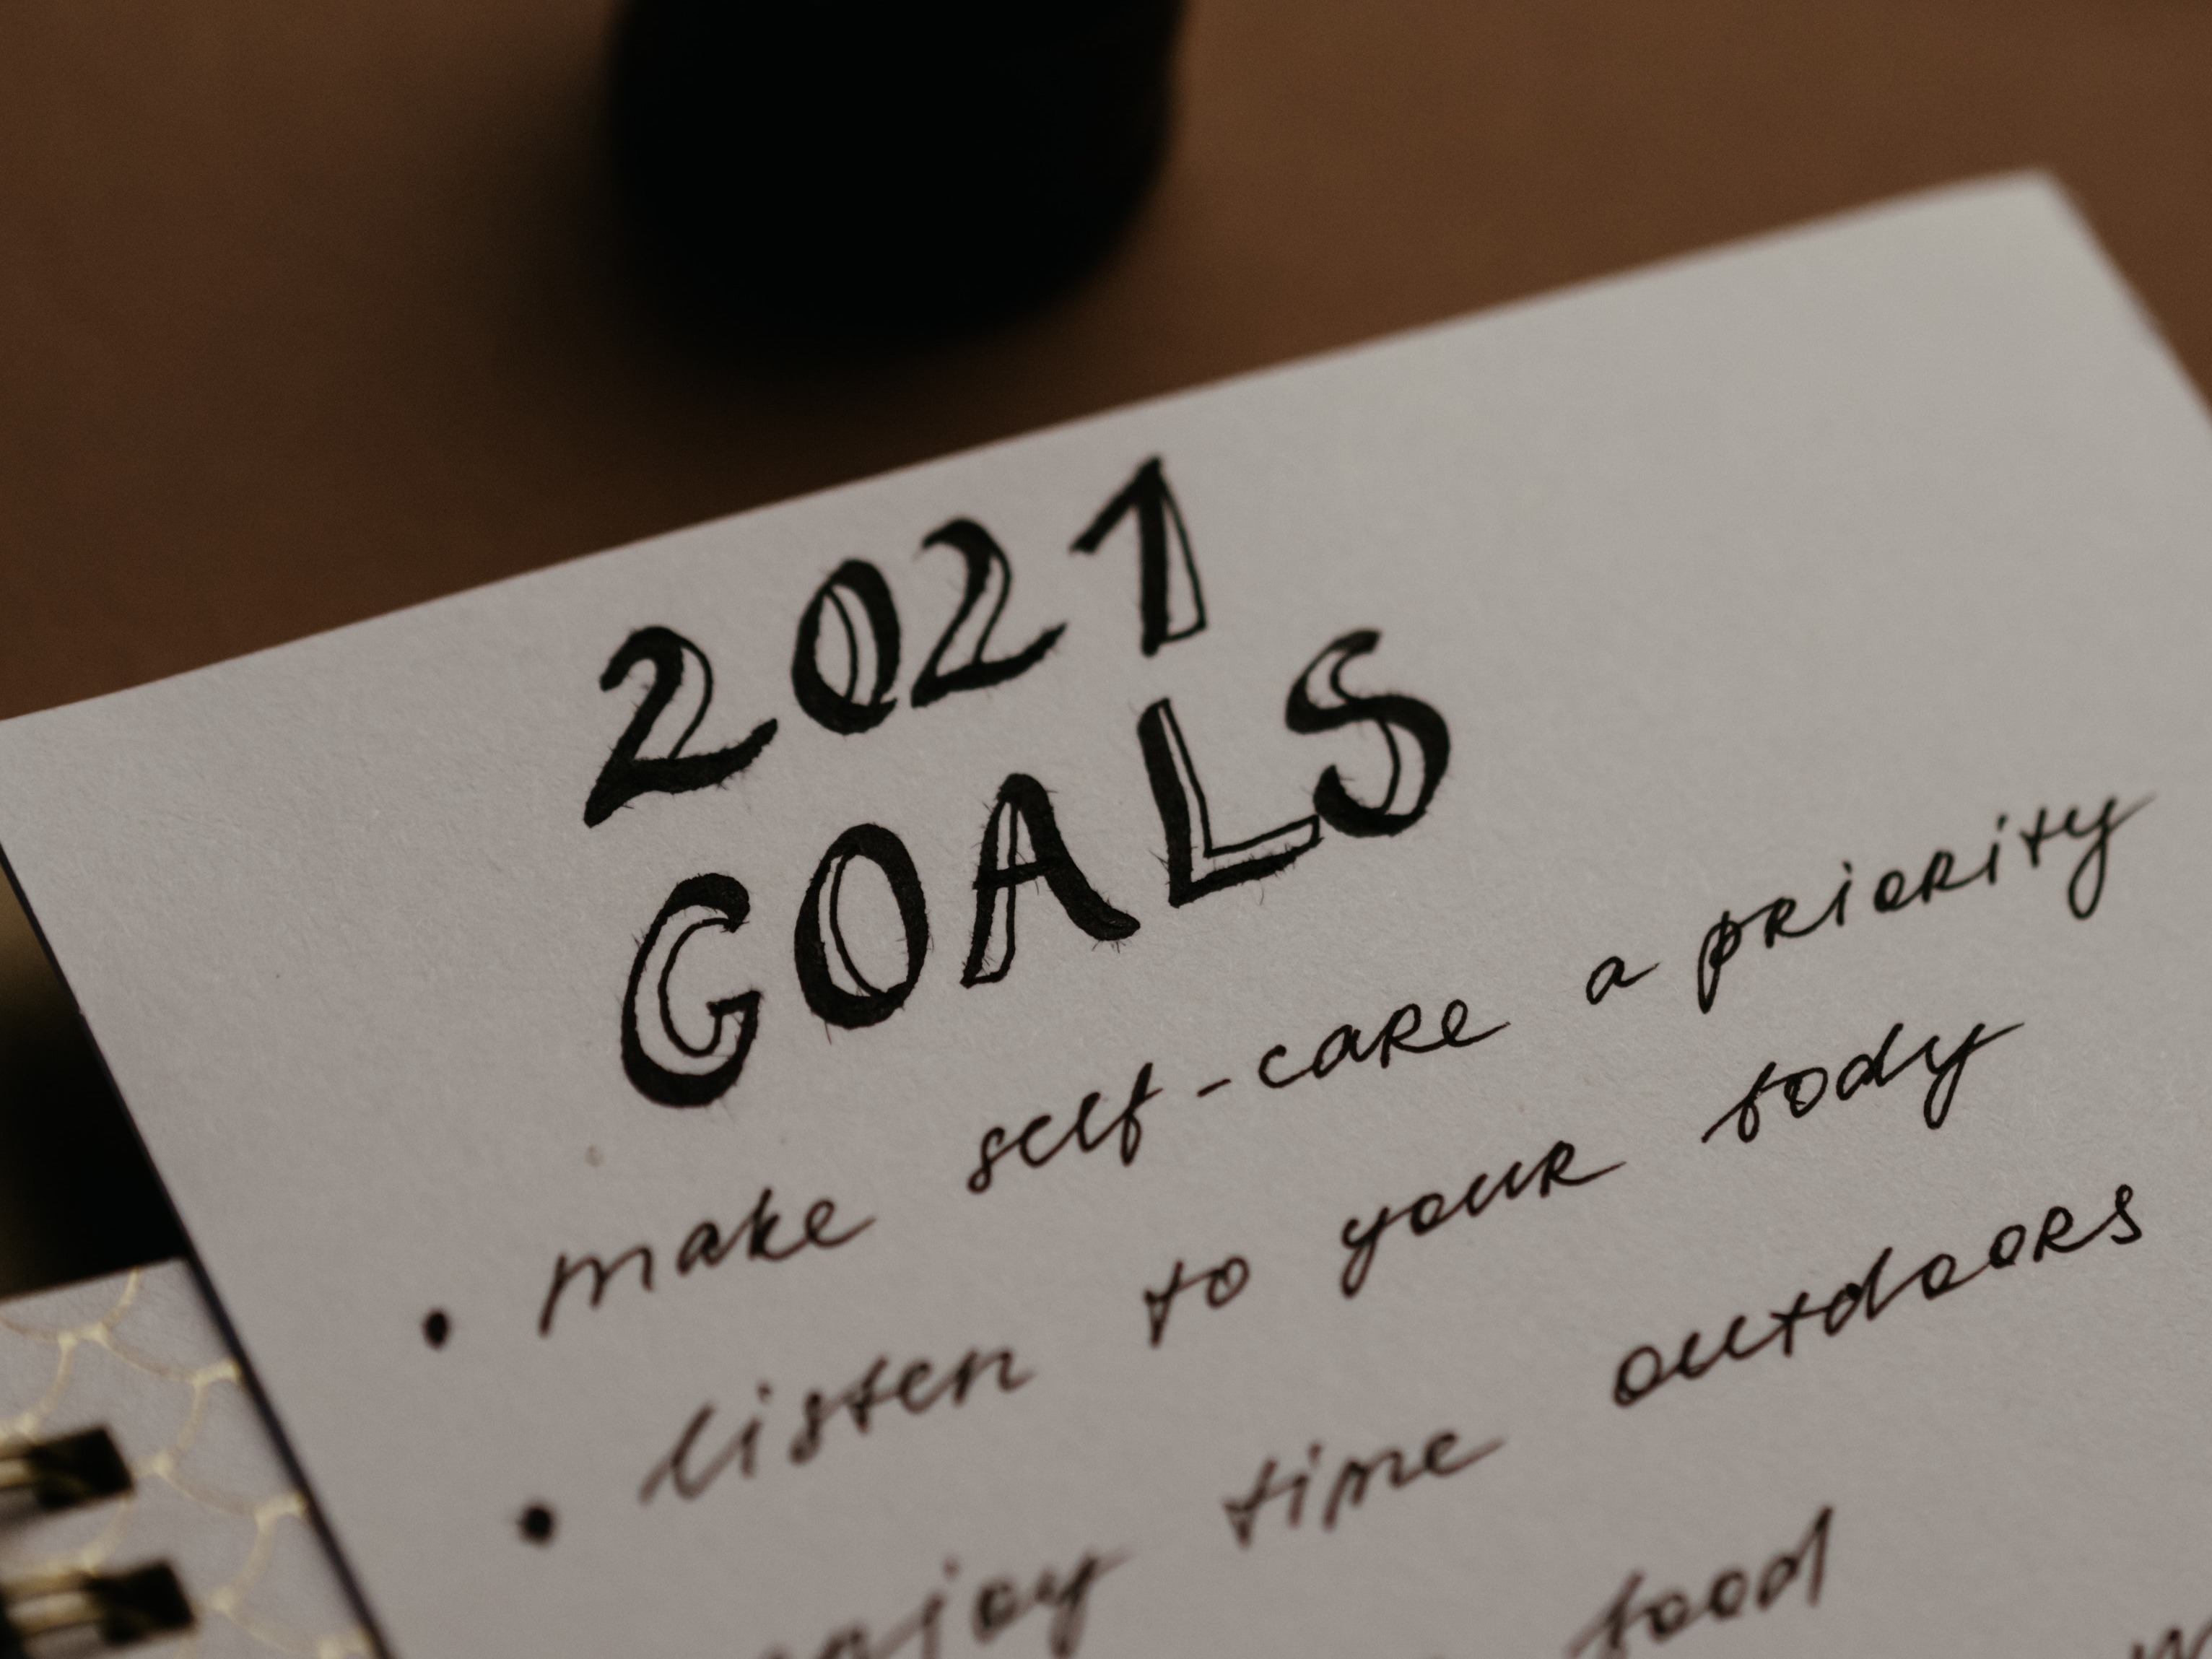 2021
GOALS
• make self-care a priority
• listen to your body
enjoy time outdoors
food